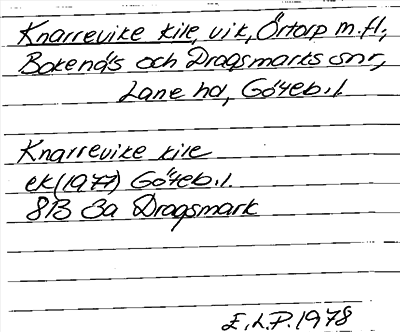 Knarrevike kile, vik, Örtorp m.fl;
Bokenäs och Dragsmarks snr,
Lane hd, Göteb.l.
Knarrevike kile
ek(1977) Göteb.l.
8B 3a Dragsmark
E.L.P. 1978